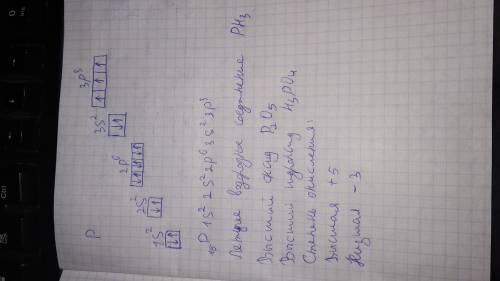 P
1S² ↑↓ 2S² ↑↓ 2p⁶ ↑↓ ↑↓ ↑↓ 3S² ↑↓ 3p³ ↑ ↑ ↑
₁₅P 1S² 2S² 2p⁶ 3S² 3p³
Летучее водородное соединение PH₃
Высший оксид P₂O₅
Высший гидроксид H₃PO₄
Степень окисления:
Высшая +5
Низшая -3
Ctrl